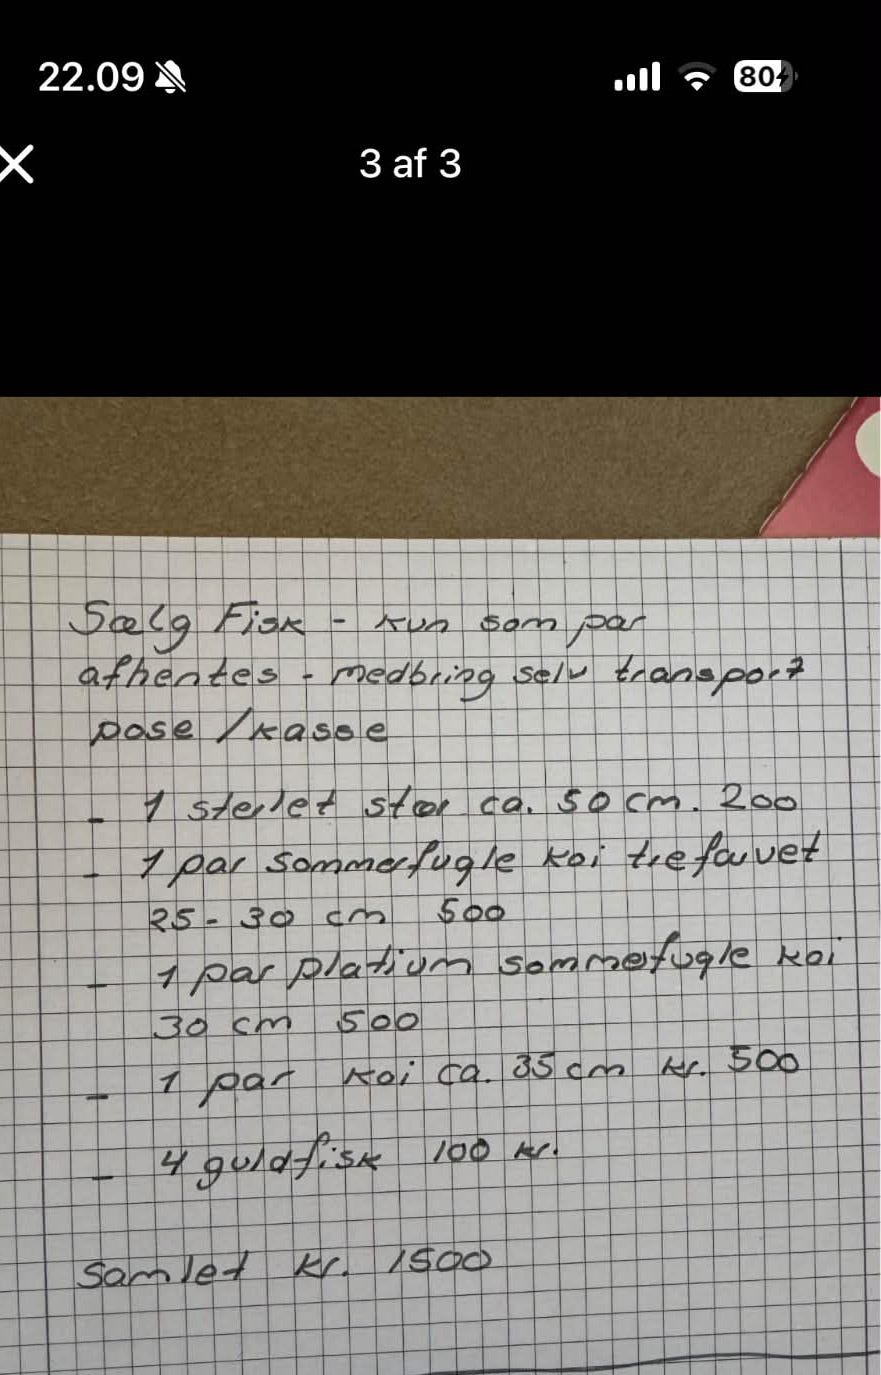 22.09
80
3 af 3
Sælg Fisk - kun som par
afhentes - medbring selv transport
pose / kasse
- 1 sterlet stør ca. 50 cm. 200
- 1 par sommerfugle koi trefarvet
25-30 cm 500
- 1 par platium sommerfugle koi
30 cm 500
- 1 par koi ca. 35 cm kr. 500
- 4 guldfisk 100 kr.
Samlet kr. 1500